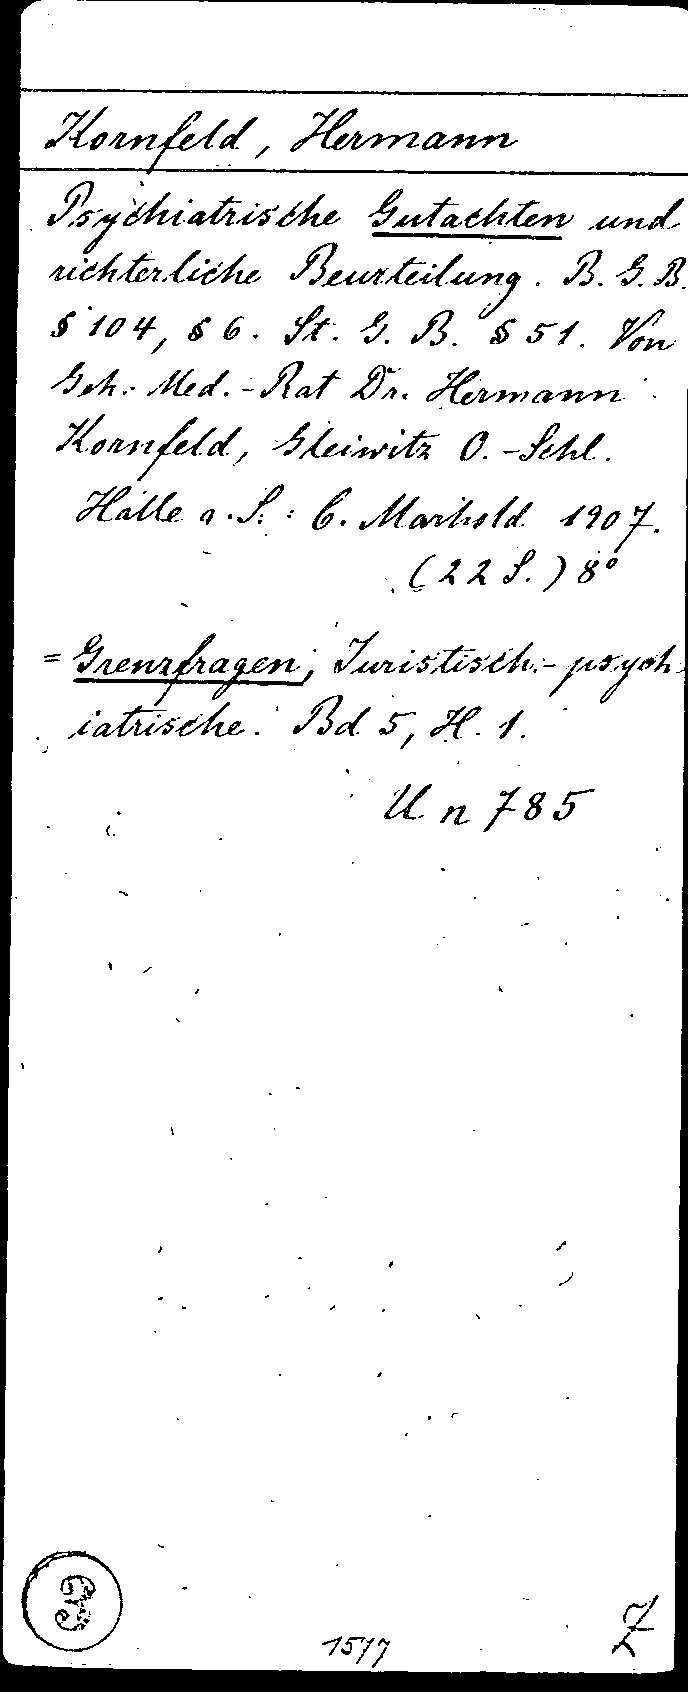 Kornfeld, Hermann
Psychiatrische Gutachten und
richterliche Beurteilung. B. G. B.
§ 104, § 6. St. G. B. § 51. Von
Geh. Med.-Rat Dr. Hermann
Kornfeld, Gleiwitz O.-Schl.
Halle a. S.: C. Marhold 1907.
(22 S.) 8°
= Grenzfragen, Juristisch-psych-
iatrische. Bd 5, H. 1.
U n 785
3
1577
Z